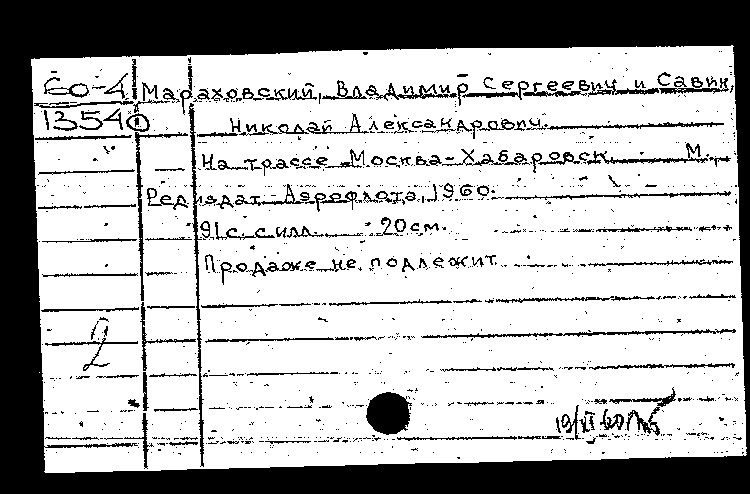 60-4 Мараховский, Владимир Сергеевич и Савин,
1354 Николай Александрович.
На трассе Москва-Хабаровск. М.,
Редиздат Аэрофлота, 1960.
91 с. с илл. 20 см.
Продаже не подлежит
2